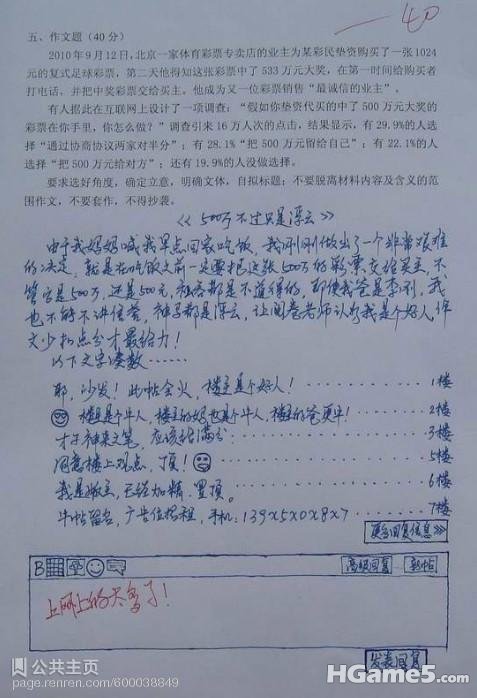 -40
五、作文题（40分）
2010年9月12日，北京一家体育彩票专卖店的业主为某彩民垫资购买了一张1024
元的复式足球彩票，第二天他得知这张彩票中了533万元大奖，在第一时间给购买者
打电话，并把中奖彩票交给买主。他成为又一位彩票销售“最诚信的业主”。
有人据此在互联网上设计了一项调查：“假如你垫资代买的中了500万元大奖的
彩票在你手里，你怎么做？”调查引来16万人次的点击，结果显示，有29.9%的人选
择“通过协商协议两家对半分”；有28.1%“把500万元留给自己”；有22.1%的人
选择“把500万元给对方”；还有19.9%的人没做选择。
要求选好角度，确定立意，明确文体，自拟标题；不要脱离材料内容及含义的范
围作文，不要套作，不得抄袭。
《500万不过只是浮云》
由于我妈妈喊我早点回家吃饭，我刚刚做出了一个非常艰难
的决定，就是在吃饭之前一定要把这张500万的彩票交给买主，不
管它是500万，还是500元，私吞都是不道德的，即使我爸是李刚，我
也不能不讲信誉，神马都是浮云，让阅卷老师认为我是个好人，作
文少扣点分才最给力！
以下文字凑数……
耶，沙发！此帖会火，楼主是个好人！…………1楼
楼主是个牛人，楼主的妈也是个牛人，楼主的爸更牛！…………2楼
才子神来之笔，应该给满分…………3楼
同意楼上观点，顶！…………5楼
我是版主，已经加精，置顶。…………6楼
牛帖留名，广告位招租，手机：139x5x0x8x7…………7楼
更多回复信息>>
B 高级回复 新帖
上网上的太多了！
发表回复
人人公共主页
page.renren.com/600038849
HGame5.com